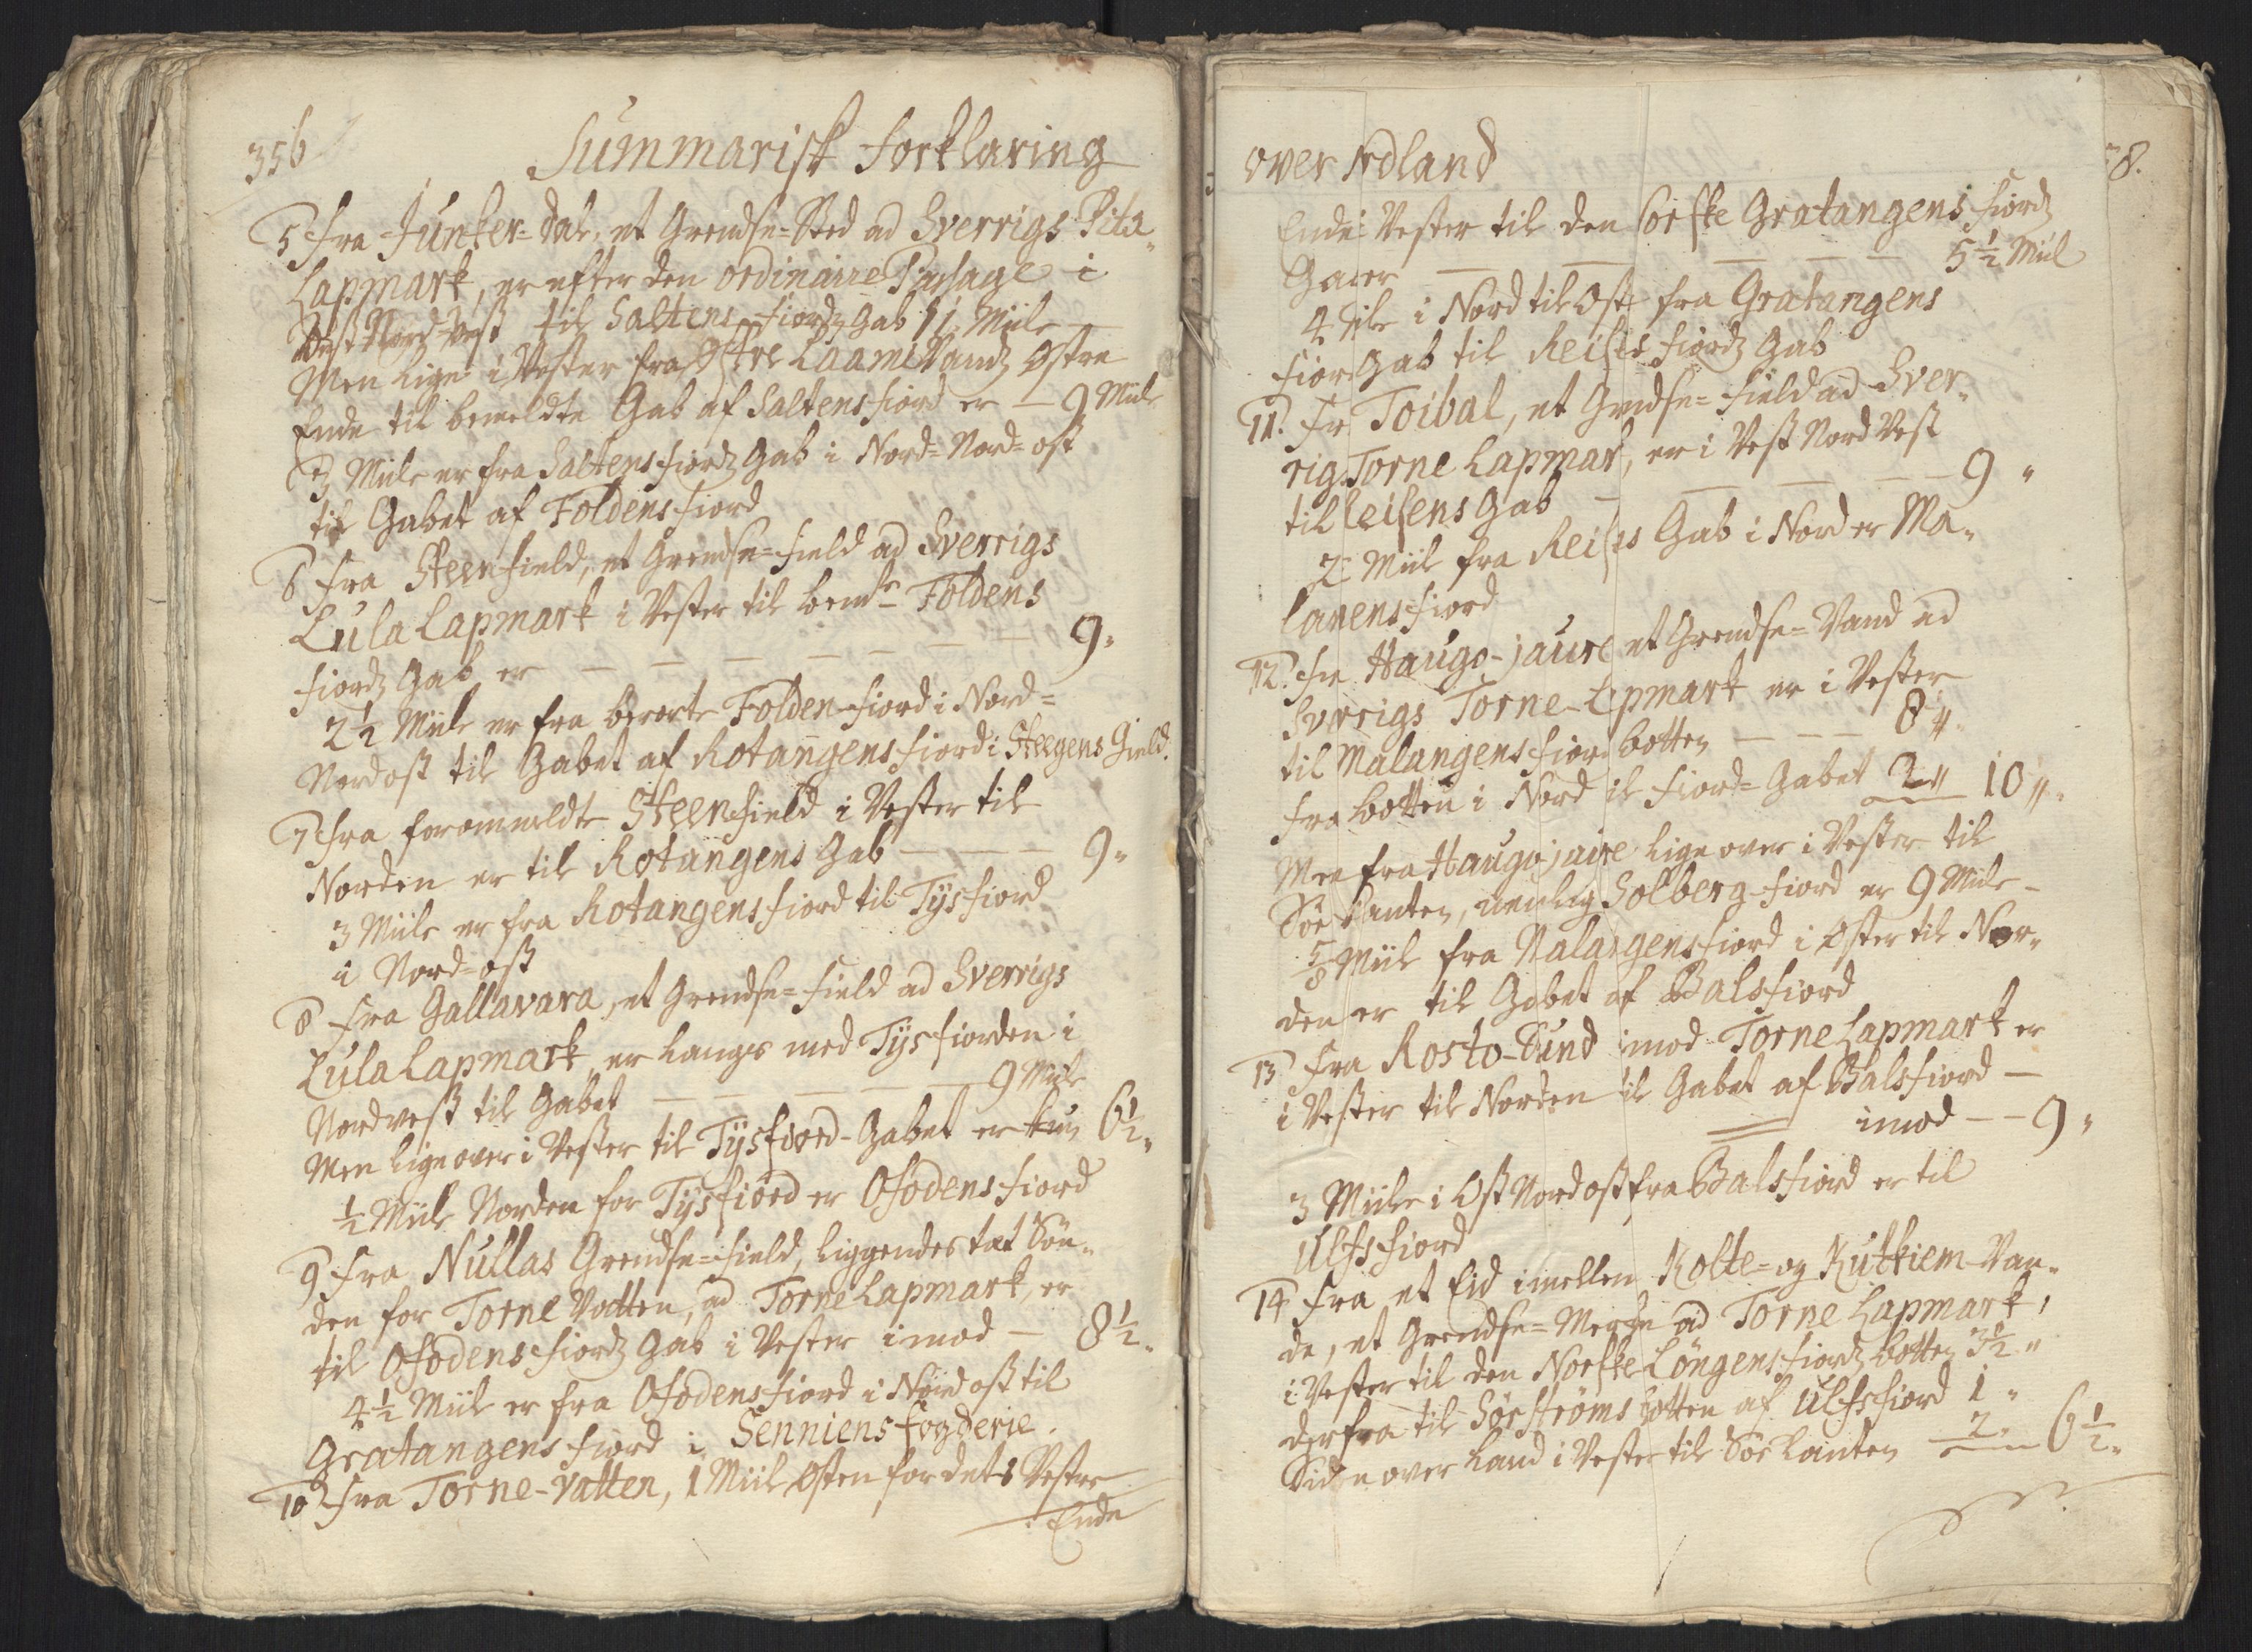 356
Summarisk Forklaring
5 Fra Junker-Dal, et Grendse-Sted ad Sverrigs Pita-
Lapmark, er efter den ordinaire Passage i
Vest Nord-Vest til Saltens-fiords Gab 11 Miile
Men lige i Vester fra Øfre Laami Vands Østre
Ende til bemeldte Gab af Saltensfiord er — 9 Miile
3 Miile er fra Saltensfiords Gab i Nord-Nord-ost
til Gabet af Foldensfiord
6 Fra Steenfield, et Grendse-field ad Sverrigs
Lula Lapmark i Vester til bemte Foldens
fiords Gab er — — — — — — — 9"
2½ Miile er fra berørte Folden-fiord i Nord-
Nordost til Gabet af Rotangensfiord i Steegens Gield.
7 Fra forommeldte Steenfield i Vester til
Norden er til Rotangens Gab — — — 9"
3 Miile er fra Rotangensfiord til Tysfiord
i Nord-ost
8 Fra Gallavara, et Grendse-field ad Sverrigs
Lula Lapmark, er langs med Tysfiorden i
Nordvest til Gabet — — — — 9 Miile
Men lige over i Vester til Tysfiord-Gabet er kun 6½"
½ Miile Norden for Tysfiord er Ofodensfiord
9 Fra Nullas Grendse-field, liggendes tæt Sön-
den for Torne Vatten, ad Torne Lapmark, er
til Ofodensfiords Gab i Vester imod — 8½"
4½ Miil er fra Ofodensfiord i Nordost til
Gratangensfiord i Senniens Fogderie.
10 Fra Torne-Vatten, 1 Miil Østen for dets Vestre
Ende
over Nordland
Ende i Vester til den Norske Gratangens fiords
Gab er — — — — — 5½ Miil
4 Miile i Nord til Ost fra Gratangens
Fiords Gab til Reisens fiords Gab
11. Fra Toibal, et Grendse-field ad Sver-
rigs Torne Lapmark, er i Vest Nord Vest
til Reisens Gab — — — — 9 "
2 Miil fra Reisens Gab i Nord er Ma-
langensfiord
12. Fra Haugo-jaure et Grendse-Vand ad
Sverrigs Torne Lapmark er i Vester
til Malangensfiords botten — — — 8 "
fra botten i Nord til Fiord-Gabet 2" 10 "
Men fra Haugojaure lige over i Vester til
Söe Kanten, nemlig Solberg-fiord er 9 Miile
5/8 Miil fra Malangensfiord i Øster til Nor-
den er til Gabet af Balsfiord
13 Fra Rosto-Sund imod Torne Lapmark er
i Vester til Norden til Gabet af Balsfiord —
imod — — 9 "
3 Miile i Ost Nordost fra Balsfiord er til
Ulfsfiord
14 Fra et Eid imellem Kolte- og Kutkiem-Van-
de, et Grendse-Merke ad Torne Lapmark,
i Vester til den Norske Löngensfiords botten 3½ "
derfra til Sörströms botten af Ulfsfiord 1 "
Siden over Land i Vester til Söe Kanten 2" 6½"